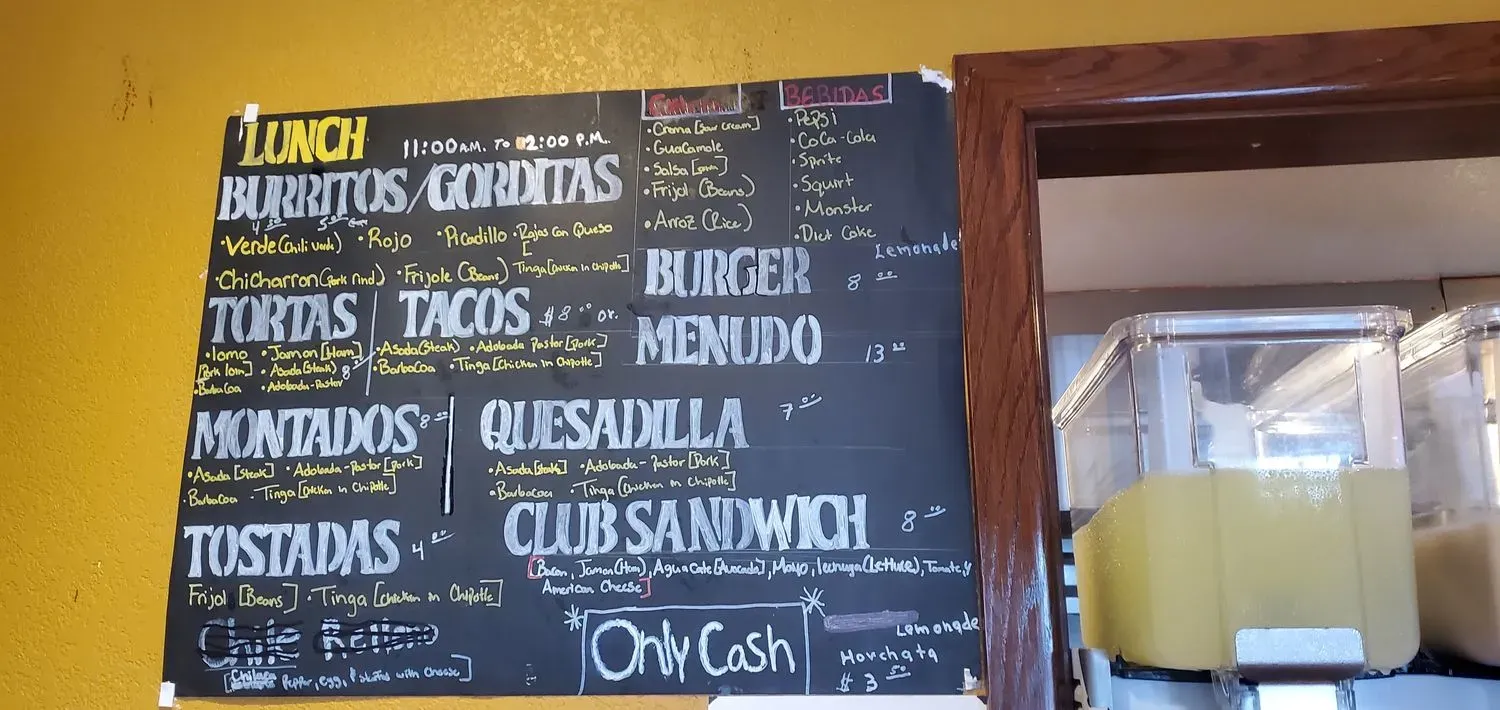 LUNCH
11:00 A.M. To 2:00 P.M.
BURRITOS / GORDITAS
4 00 5
• Verde (Chili Verde) • Rojo • Picadillo • Rajas Con Queso
• Chicharron (Pork rind) • Frijole (Beans) Tinga [Chicken in Chipotle]
TORTAS
• lomo • Jamon [Ham]
[Pork loin] • Asada (Steak) 8
• Barbacoa • Adobada-Pastor
TACOS $8 00 or.
• Asada (Steak) • Adobada Pastor [Pork]
• Barbacoa • Tinga [Chicken in Chipotle]
MONTADOS 8 00
• Asada [Steak] • Adobada-Pastor [Pork]
• Barbacoa - Tinga [Chicken in Chipotle]
TOSTADAS 4 00
Frijol [Beans] • Tinga [Chicken in Chipotle]
Chile Relleno
Pepper, egg, with Cheese]
• Crema [Sour Cream]
• Guacamole
• Salsa
• Frijol (Beans)
• Arroz (Rice)
BEBIDAS
• Pepsi
• Coca-Cola
• Sprite
• Squirt
• Monster
• Diet Coke
Lemonade
BURGER 8 00
MENUDO 13 00
QUESADILLA 7 00
• Asada [Steak] • Adobada-Pastor [Pork]
• Barbacoa • Tinga [Chicken in Chipotle]
CLUB SANDWICH 8 00
[Bacon, Jamon (Ham), Aguacate [Avocado], Mayo, lechuga (Lettuce), Tomate, y
American Cheese]
Only Cash
Lemonade
Horchata
$ 3 50